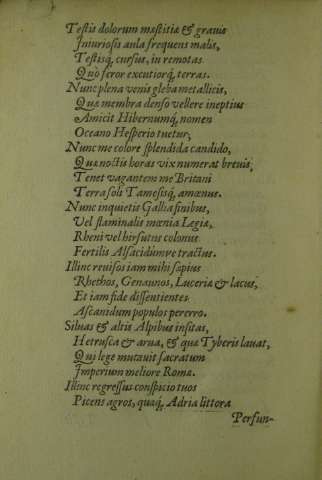 Testis dolorum mæstitiæ & grauis
Iniuriosis aula frequens malis,
Testisq́, cursus, in remotas
Quò feror excutiorq́, terras.
Nunc plena venis gleba metallicis,
Quæ membra denso vellere ineptius
Amicit Hibernumq́, nomen
Oceano Hesperio tuetur,
Nunc me colore splendida candido,
Quæ noctis horas vix numerat breuis,
Tenet vagantem me Britani
Terra soli Tamesisq́, amœnus.
Nunc inquietis Gallia finibus,
Vel flaminalis mœnia Legiæ,
Rheni vel hirsutus colonus
Fertilis Alsacidumve tractus.
Illinc reuisos iam mihi sæpius
Rhethos, Genaunos, Luceriæ & lacus,
Et iam fide dissentientes
Ascanidum populos pererro.
Siluas & altis Alpibus insitas,
Hetrusca & arua, & quæ Tyberis lauat,
Qui lege mutauit sacratum
Imperium meliore Romæ.
Illinc regressus conspicio tuos
Picens agros, quaq́, Adria littora
Perfun-